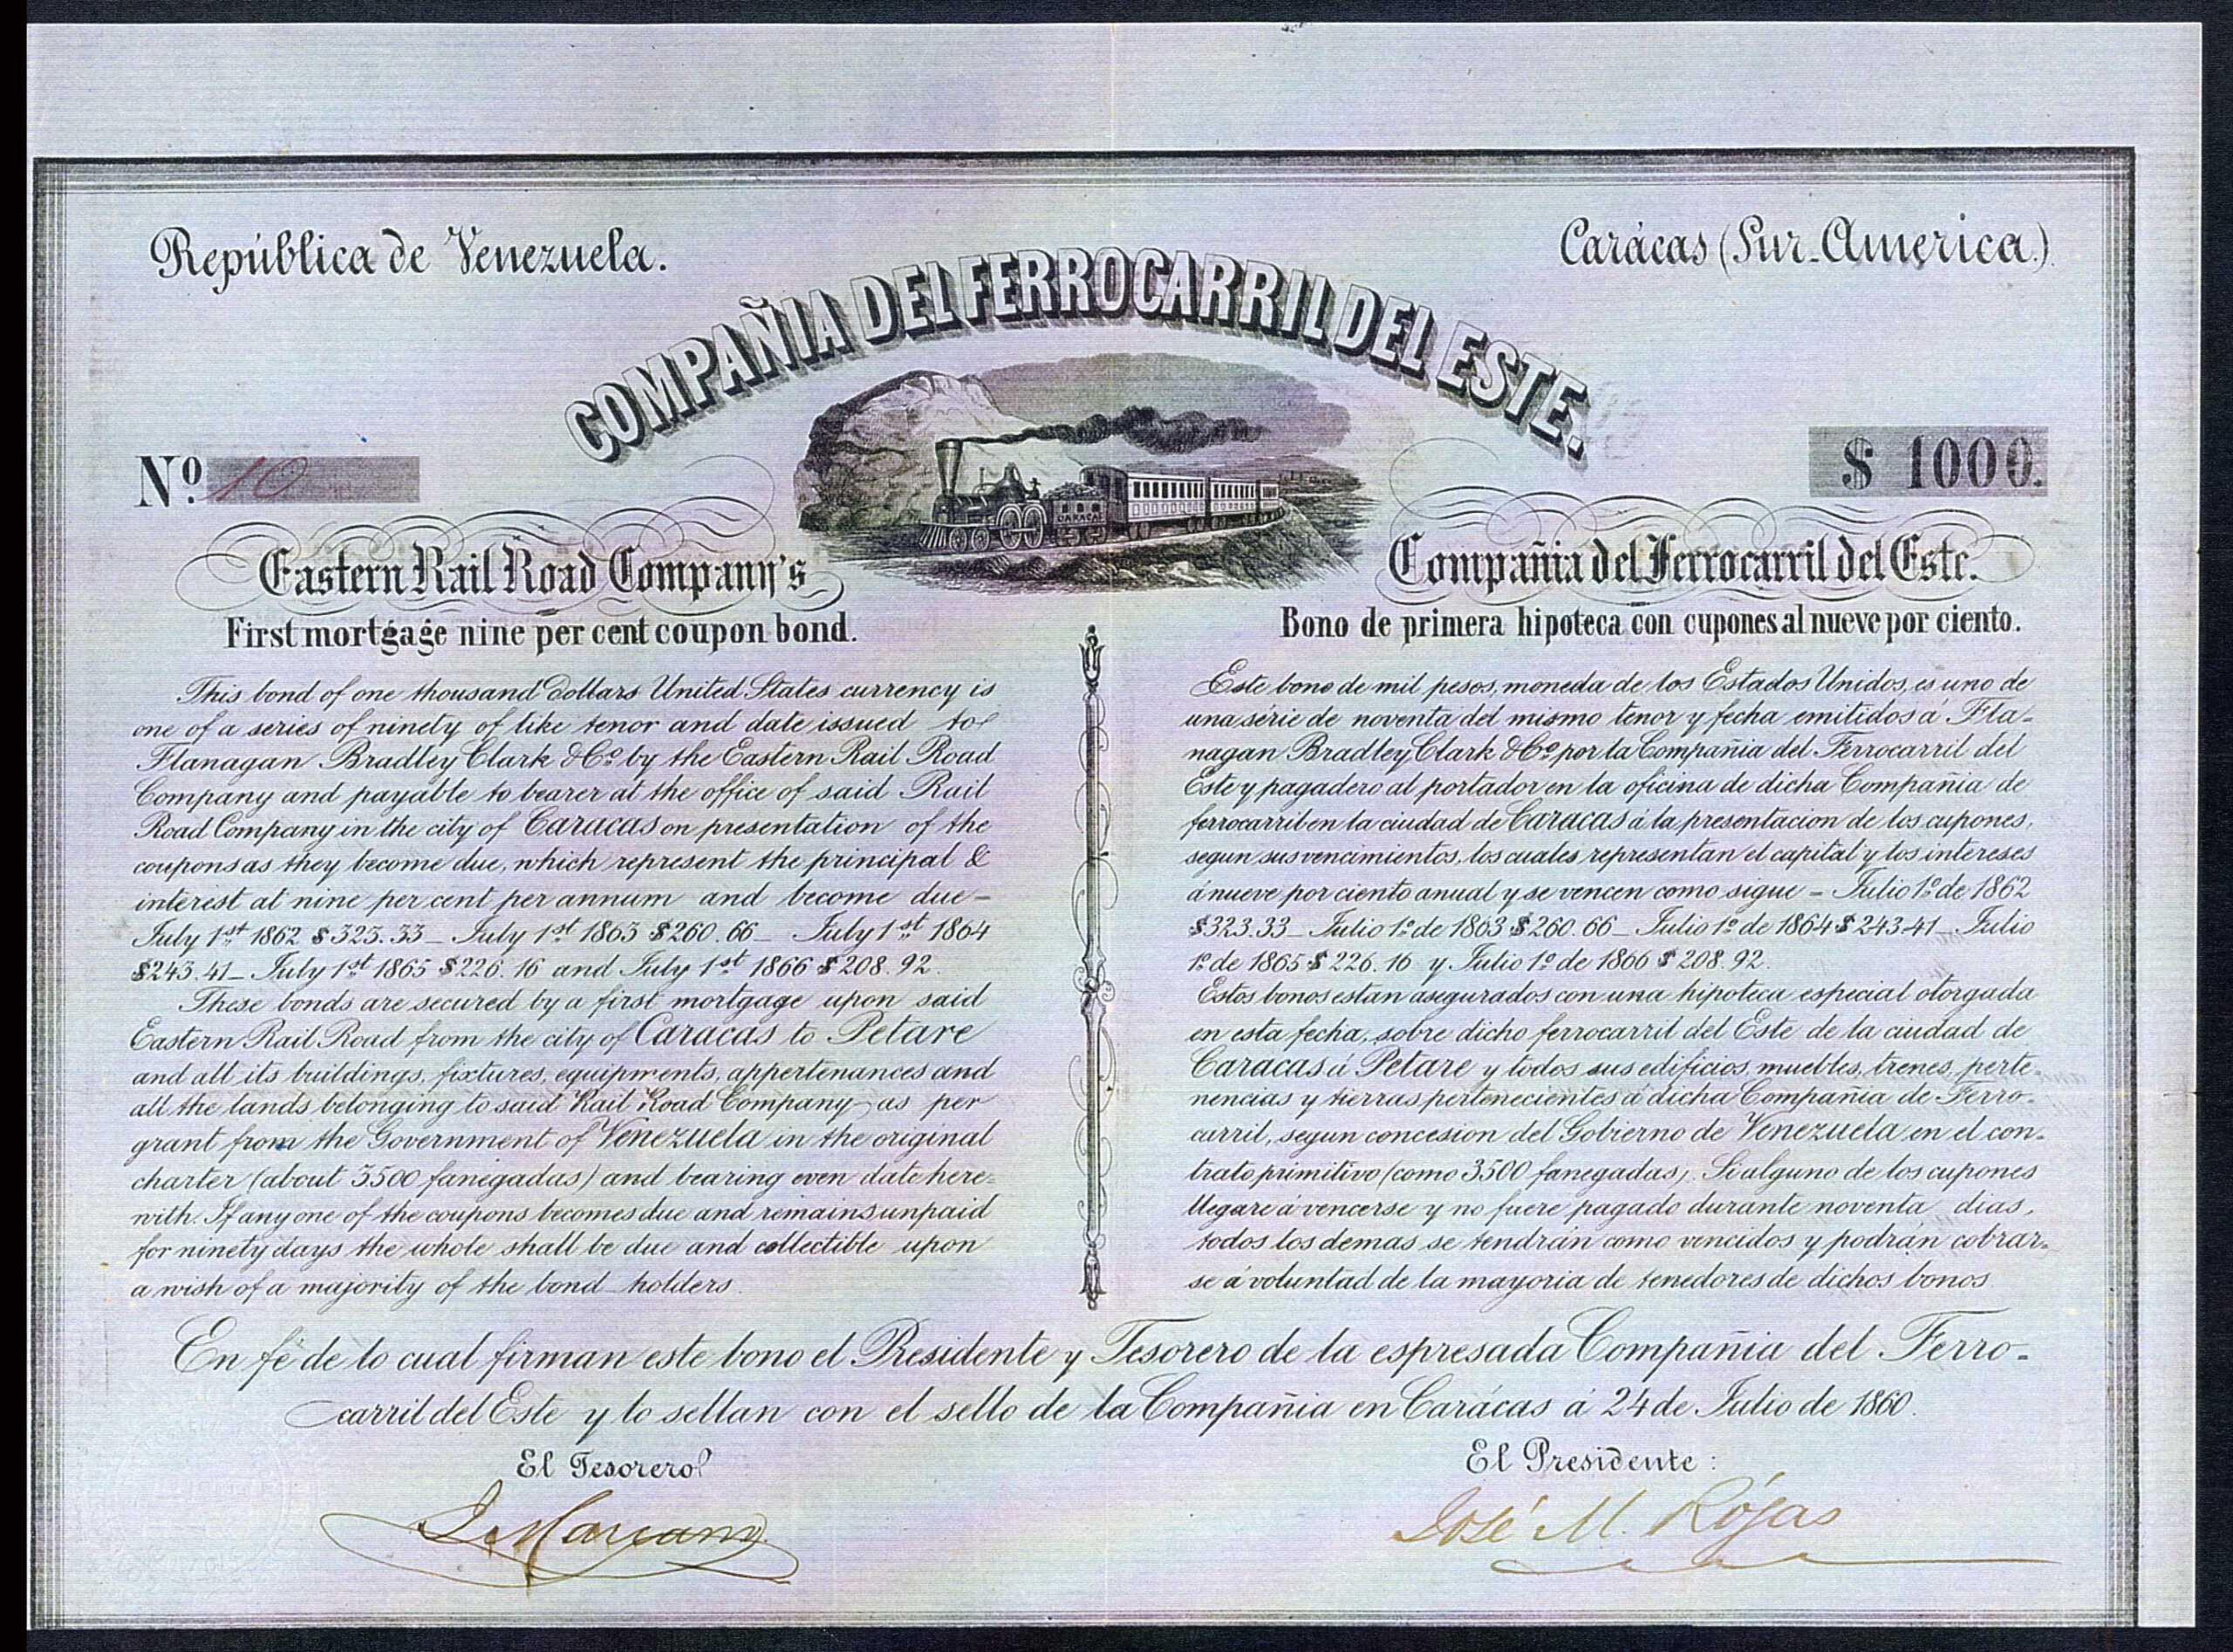 República de Venezuela.
Carácas (Sur-America.)
COMPAÑIA DEL FERROCARRIL DEL ESTE.
Nº 10
$ 1000.
CARACAS
Eastern Rail Road Company's
First mortgage nine per cent coupon bond.
This bond of one thousand Dollars United States currency is
one of a series of ninety of like tenor and date issued to
Flanagan Bradley Clark & Cº by the Eastern Rail Road
Company and payable to bearer at the office of said Rail
Road Company in the city of Caracas on presentation of the
coupons as they become due, which represent the principal &
interest at nine per cent per annum and become due –
July 1st 1862 $323.33 – July 1st 1863 $260.66 – July 1st 1864
$243.41 – July 1st 1865 $226.16 and July 1st 1866 $208.92.
These bonds are secured by a first mortgage upon said
Eastern Rail Road from the city of Caracas to Petare
and all its buildings, fixtures, equipments, appertenances and
all the lands belonging to said Rail Road Company as per
grant from the Government of Venezuela in the original
charter (about 3500 fanegadas) and bearing even date here=
with. If any one of the coupons becomes due and remains unpaid
for ninety days the whole shall be due and collectible upon
a wish of a majority of the bond-holders.
Compañia del Ferrocarril del Este.
Bono de primera hipoteca con cupones al nueve por ciento.
Este bono de mil pesos, moneda de los Estados Unidos, es uno de
una série de noventa del mismo tenor y fecha emitidos á Fla-
nagan Bradley Clark & Cº por la Compañia del Ferrocarril del
Este y pagadero al portador en la oficina de dicha Compañia de
ferrocarril en la ciudad de Caracas á la presentacion de los cupones,
segun sus vencimientos, los cuales representan el capital y los intereses
á nueve por ciento anual y se vencen como sigue – Julio 1º de 1862
$323.33 – Julio 1º de 1863 $260.66 – Julio 1º de 1864 $243.41 – Julio
1º de 1865 $226.16 y Julio 1º de 1866 $208.92.
Estos bonos estan asegurados con una hipoteca especial otorgada
en esta fecha, sobre dicho ferrocarril del Este de la ciudad de
Caracas á Petare y todos sus edificios, muebles, trenes, perte-
nencias y tierras pertenecientes á dicha Compañia de Ferro-
carril, segun concesion del Gobierno de Venezuela en el con-
trato primitivo (como 3500 fanegadas). Si alguno de los cupones
llegare á vencerse y no fuere pagado durante noventa dias,
todos los demas se tendrán como vencidos y podrán cobrar-
se á voluntad de la mayoria de tenedores de dichos bonos.
En fé de lo cual firman este bono el Presidente y Tesorero de la espresada Compañia del Ferro-
carril del Este y lo sellan con el sello de la Compañia en Carácas á 24 de Julio de 1860.
El Tesorero
El Presidente:
Marcano
José M. Rójas